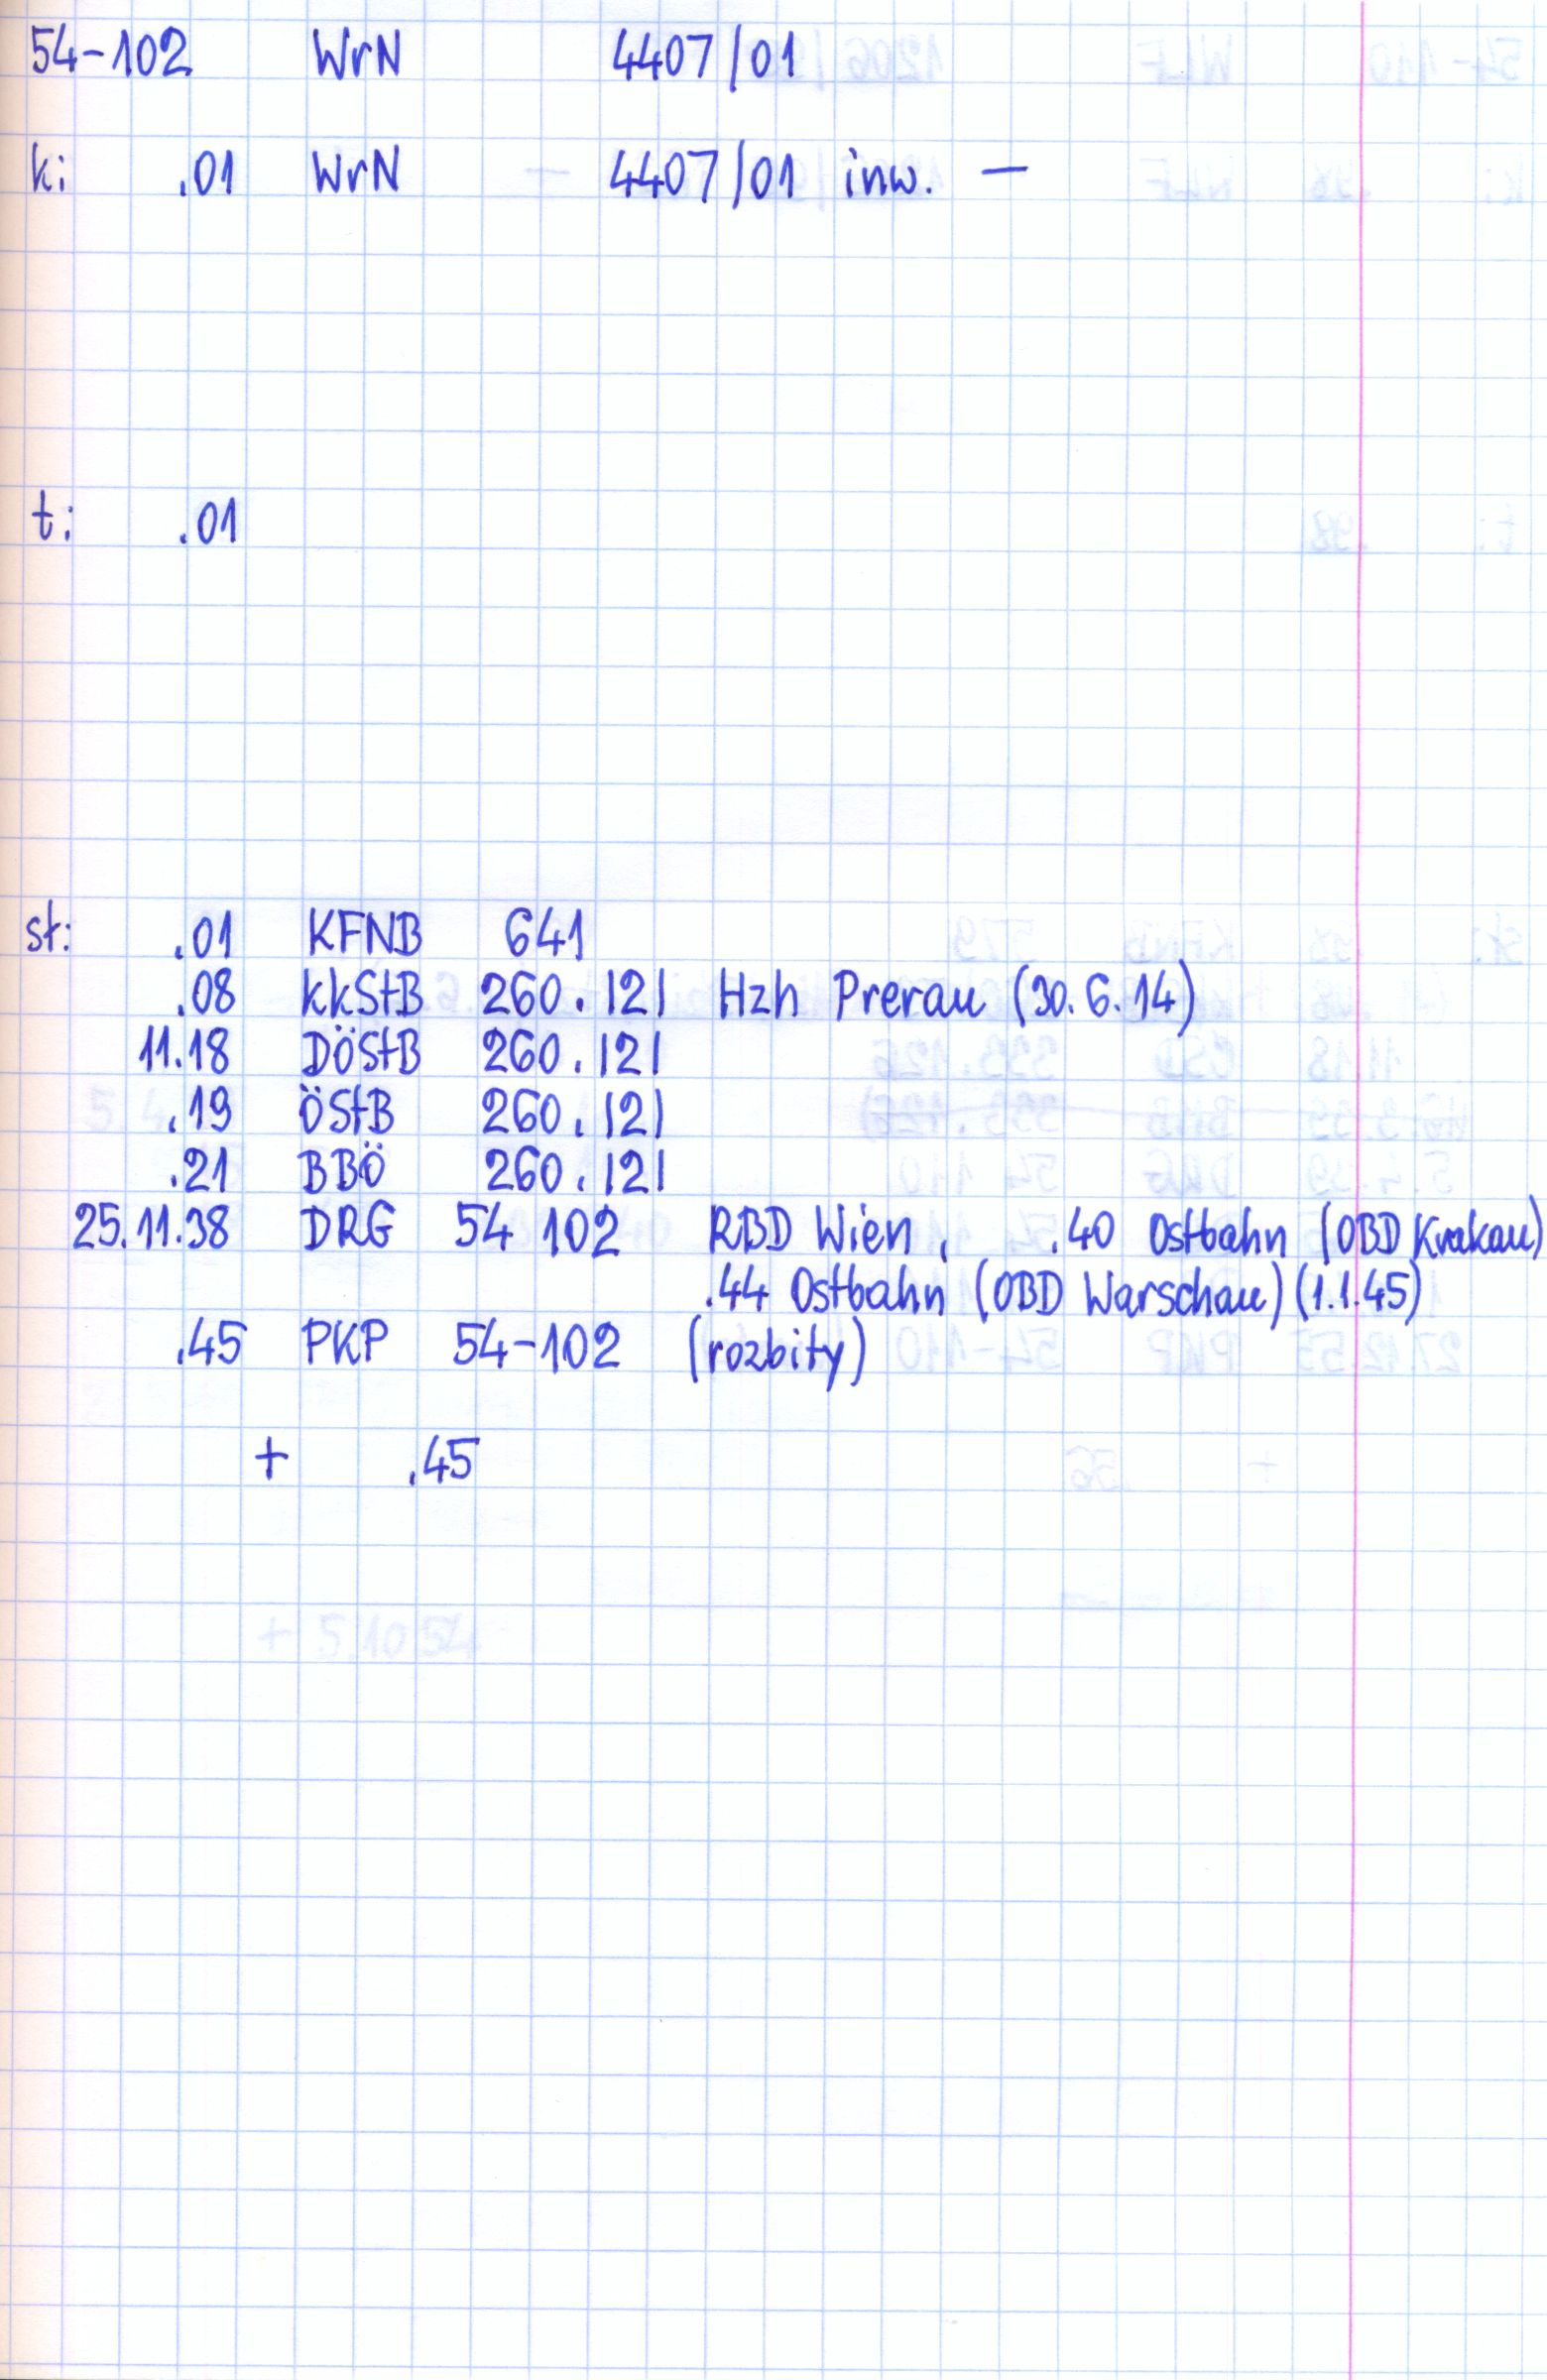 54-102 WrN 4407/01
k: .01 WrN 4407/01 inw. —
t: .01
st: .01 KFNB 641
.08 kkStB 260.121 Hzh Prerau (30.6.14)
11.18 DÖStB 260.121
.19 ÖStB 260.121
.21 BBÖ 260.121
25.11.38 DRG 54 102 RBD Wien, .40 Ostbahn (OBD Krakau)
.44 Ostbahn (OBD Warschau) (1.1.45)
.45 PKP 54-102 (rozbity)
+ .45